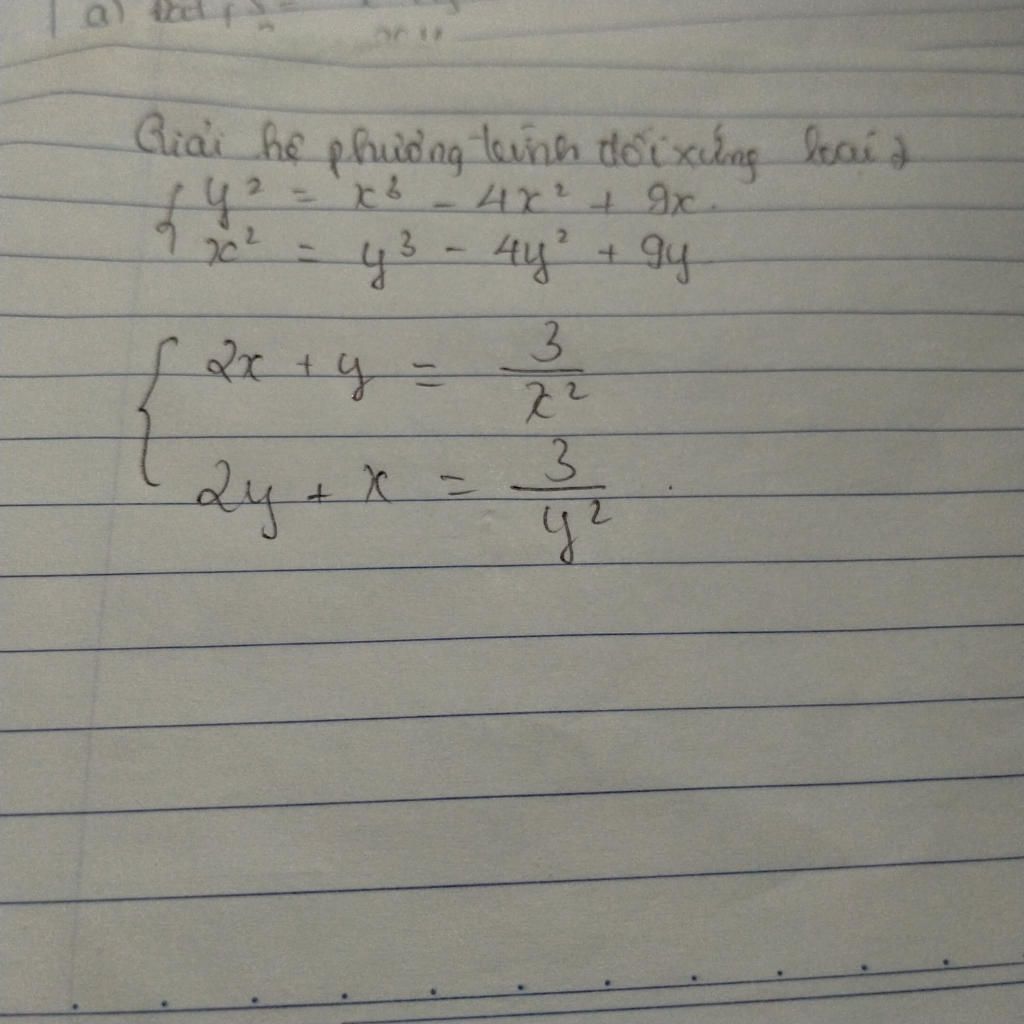 a)
Giải hệ phương trình đối xứng loại 2
{ y² = x³ - 4x² + 9x.
x² = y³ - 4y² + 9y
{ 2x + y = 3/x²
2y + x = 3/y² .